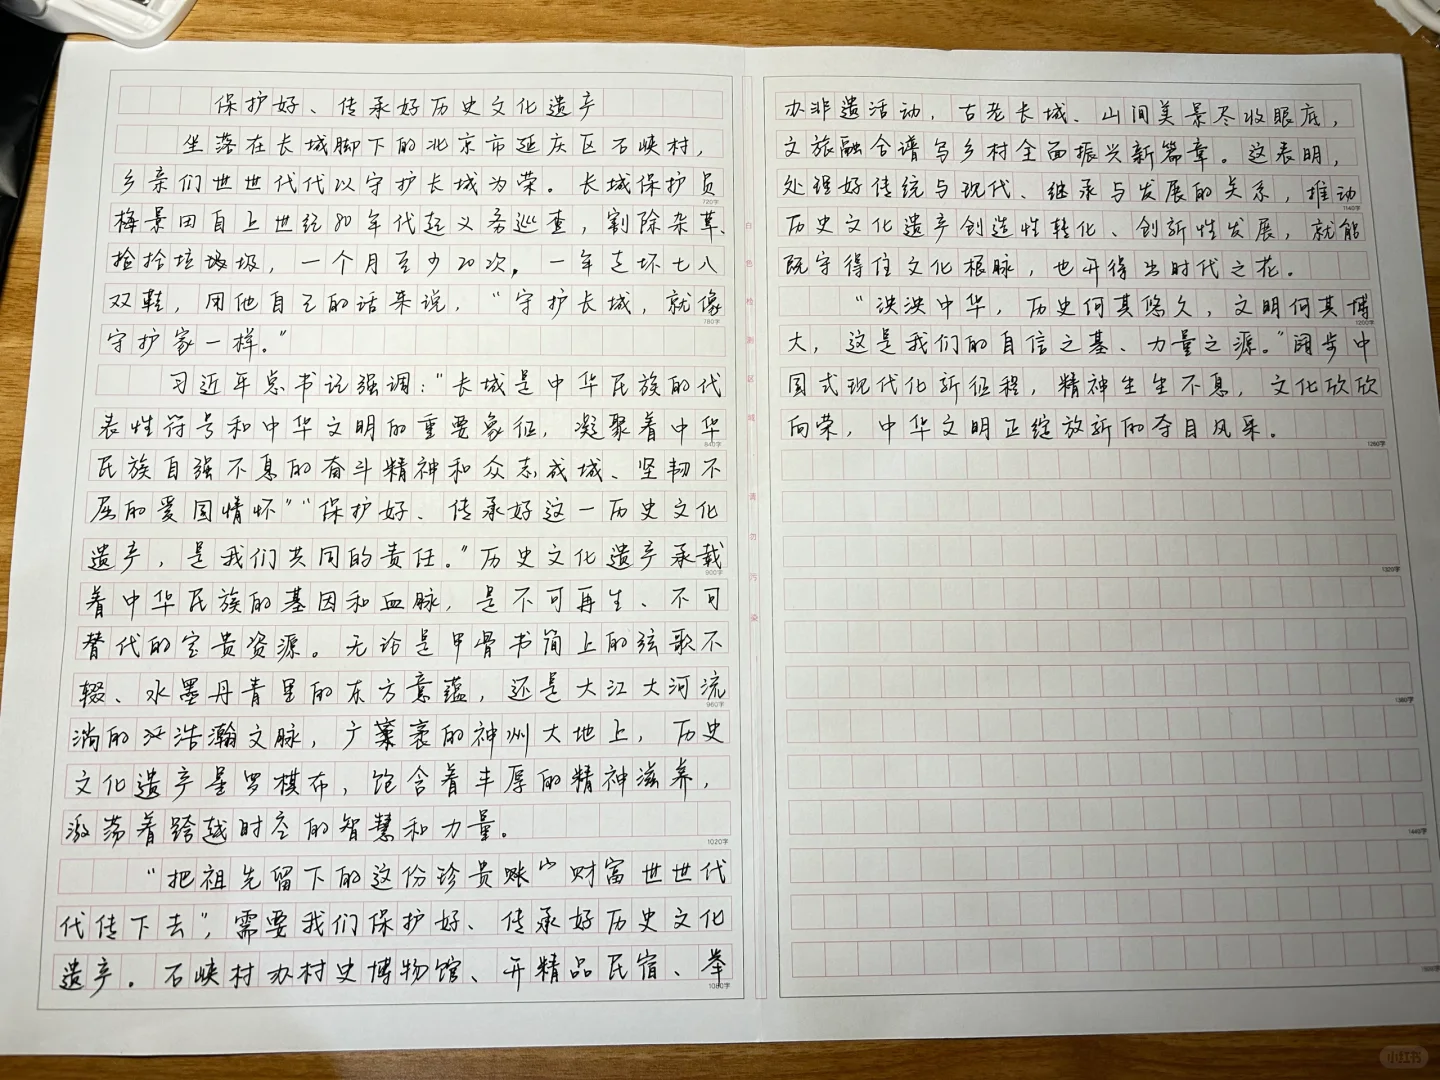 保护好、传承好历史文化遗产
坐落在长城脚下的北京市延庆区石峡村，
乡亲们世世代代以守护长城为荣。长城保护员
梅景田自上世纪80年代起义务巡查，割除杂草、
捡拾垃圾，一个月至少20次，一年走坏七八
双鞋，用他自己的话来说，“守护长城，就像
守护家一样。”
习近平总书记强调：“长城是中华民族的代
表性符号和中华文明的重要象征，凝聚着中华
民族自强不息的奋斗精神和众志成城、坚韧不
屈的爱国情怀”“保护好、传承好这一历史文化
遗产，是我们共同的责任。”历史文化遗产承载
着中华民族的基因和血脉，是不可再生、不可
替代的宝贵资源。无论是甲骨书简上的弦歌不
辍、水墨丹青里的东方意蕴，还是大江大河流
淌的浩瀚文脉，广袤的神州大地上，历史
文化遗产星罗棋布，饱含着丰厚的精神滋养，
激荡着跨越时空的智慧和力量。
“把祖先留下的这份珍贵财富世世代
代传下去”，需要我们保护好、传承好历史文化
遗产。石峡村办村史博物馆、开精品民宿、举
办非遗活动，古老长城、山间美景尽收眼底，
文旅融合谱写乡村全面振兴新篇章。这表明，
处理好传统与现代、继承与发展的关系，推动
历史文化遗产创造性转化、创新性发展，就能
既守得住文化根脉，也开得出时代之花。
“泱泱中华，历史何其悠久，文明何其博
大，这是我们的自信之基、力量之源。”阔步中
国式现代化新征程，精神生生不息，文化欣欣
向荣，中华文明正绽放新的夺目风采。
720字
780字
840字
900字
960字
1020字
1080字
1140字
1200字
1260字
1320字
1380字
1440字
小红书